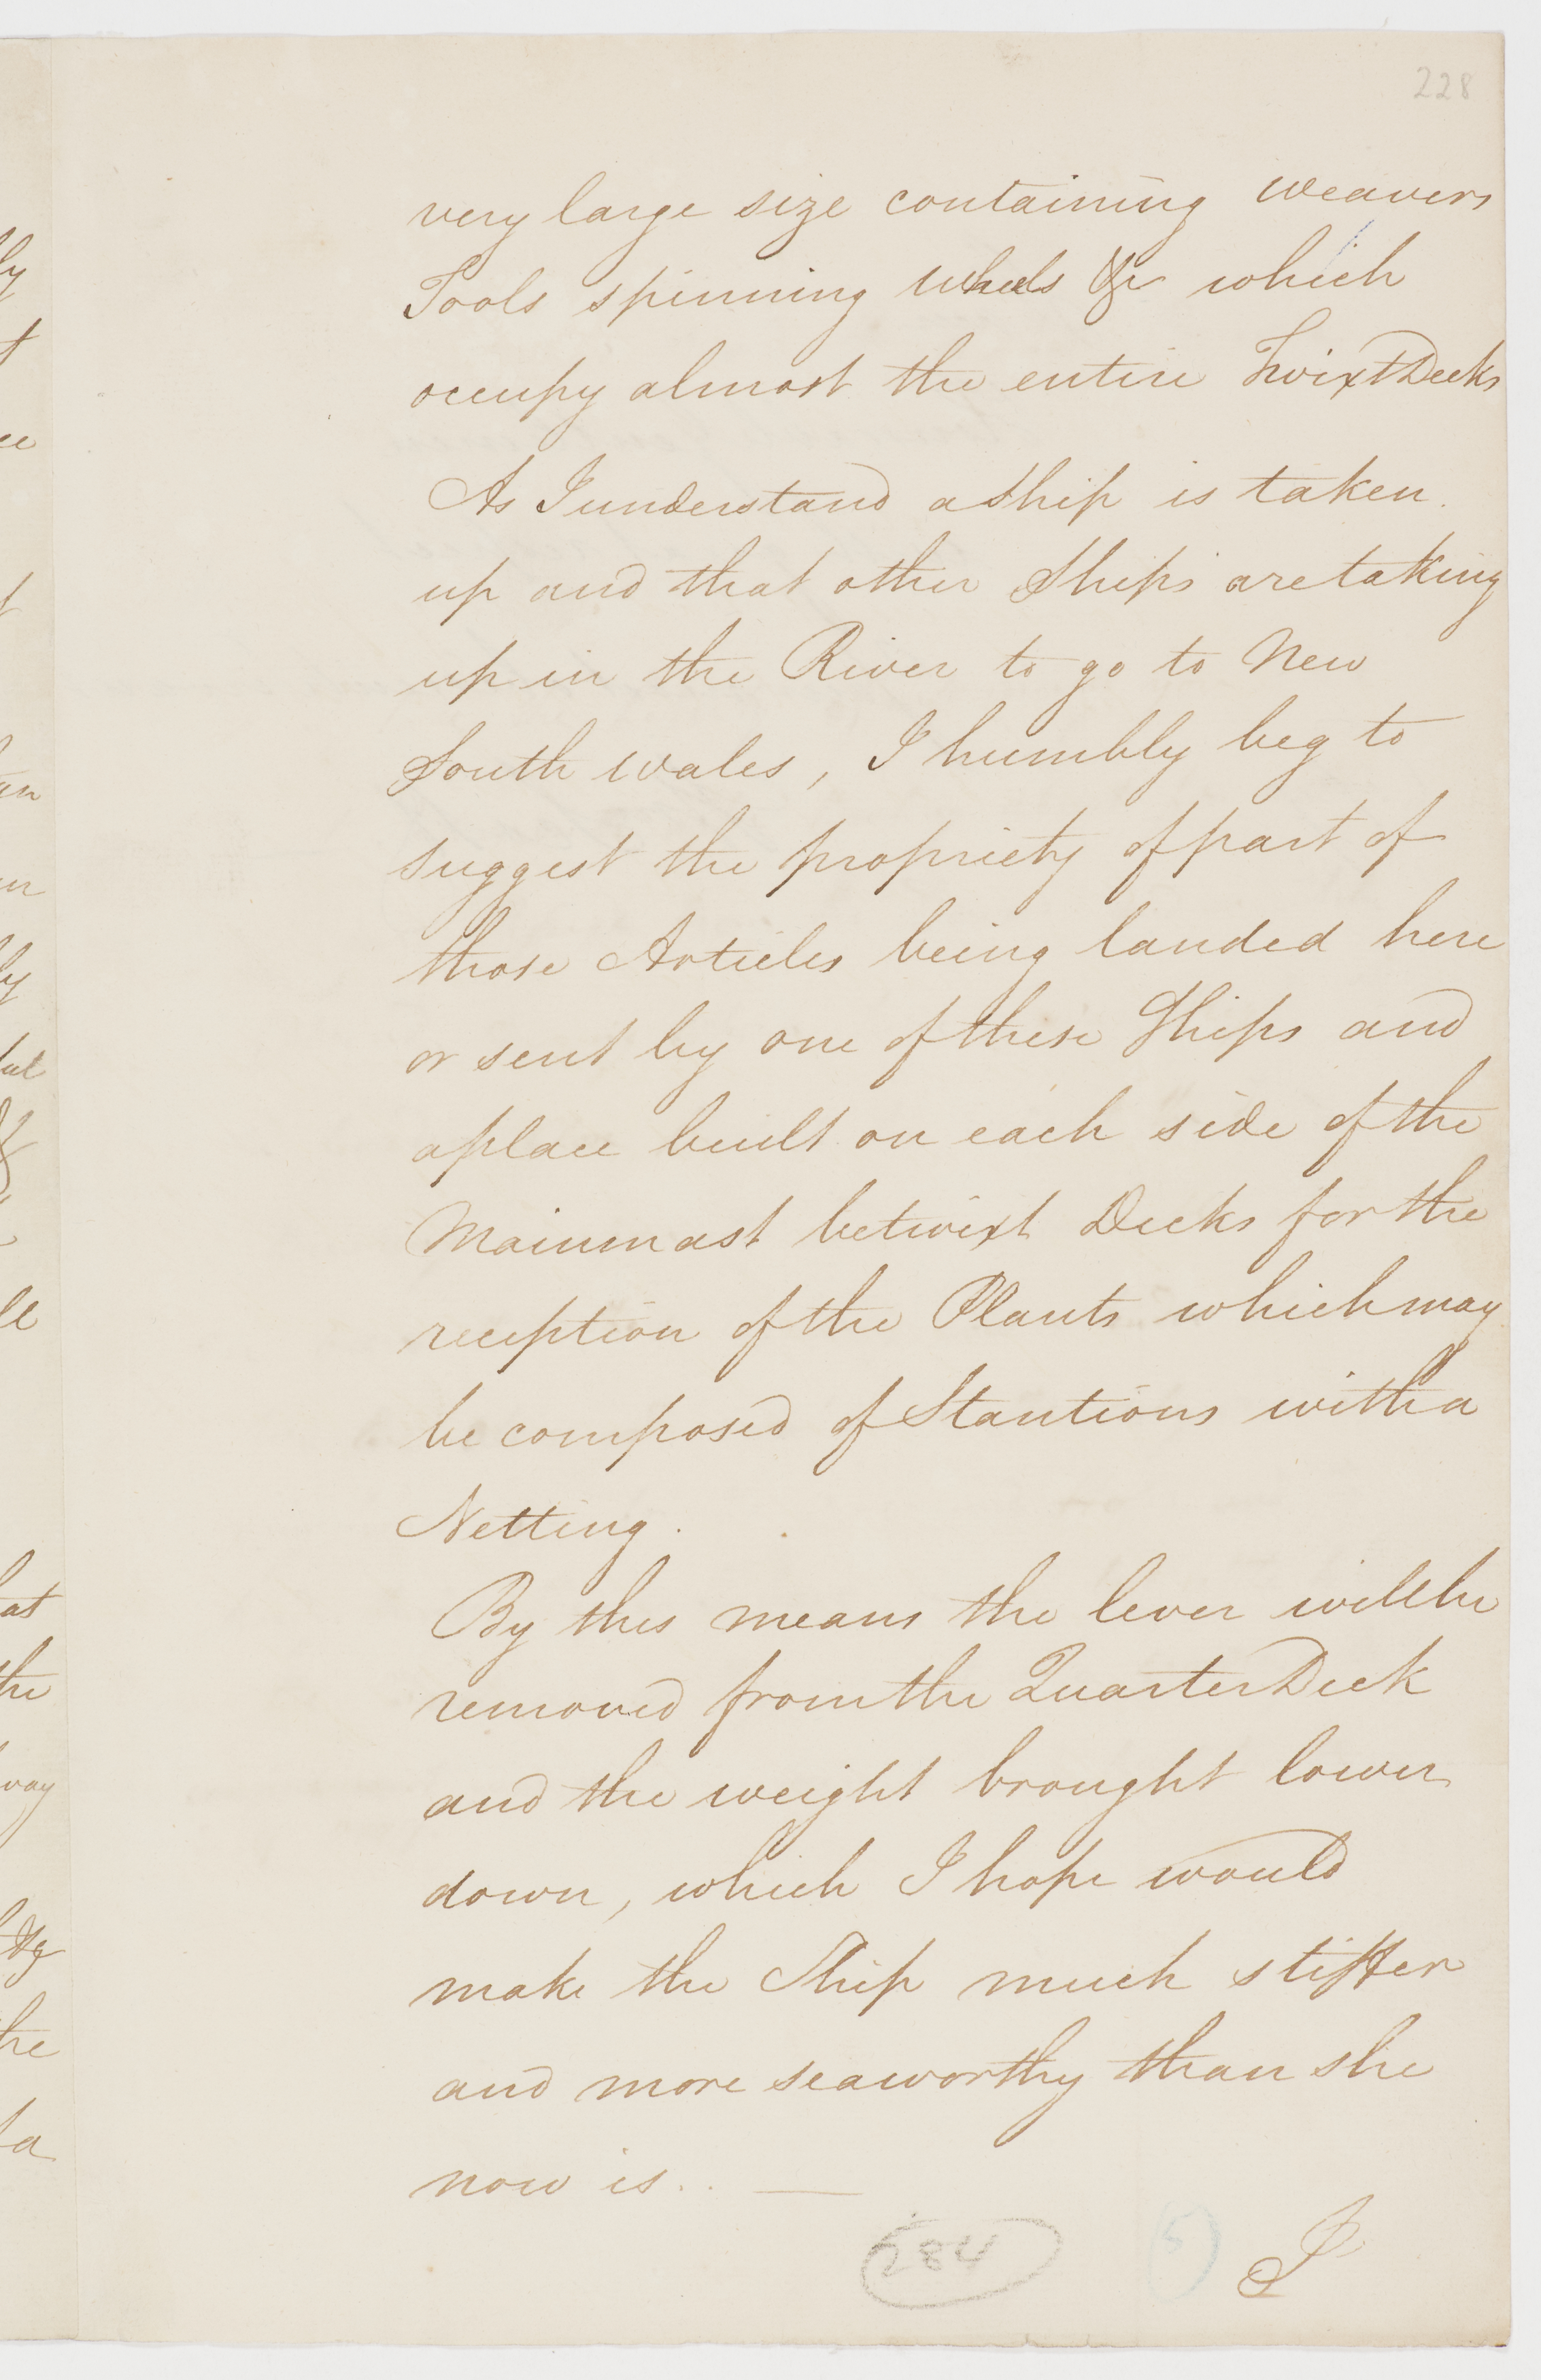 228
very large size containing weavers
Tools spinning wheels &c which
occupy almost the entire TwixtDecks
As I understand a Ship is taken
up and that other Ships are taking
up in the River to go to New
South Wales, I humbly beg to
suggest the propriety of part of
those Articles being landed here
or sent by one of these Ships and
a place built on each side of the
Mainmast betwixt Decks for the
reception of the Plants which may
be composed of Stantions with a
Netting.
By this means the lever will be
removed from the Quarter Deck
and the weight brought lower
down, which I hope would
make the Ship much stiffer
and more seaworthy than she
now is. . —
284
5
I